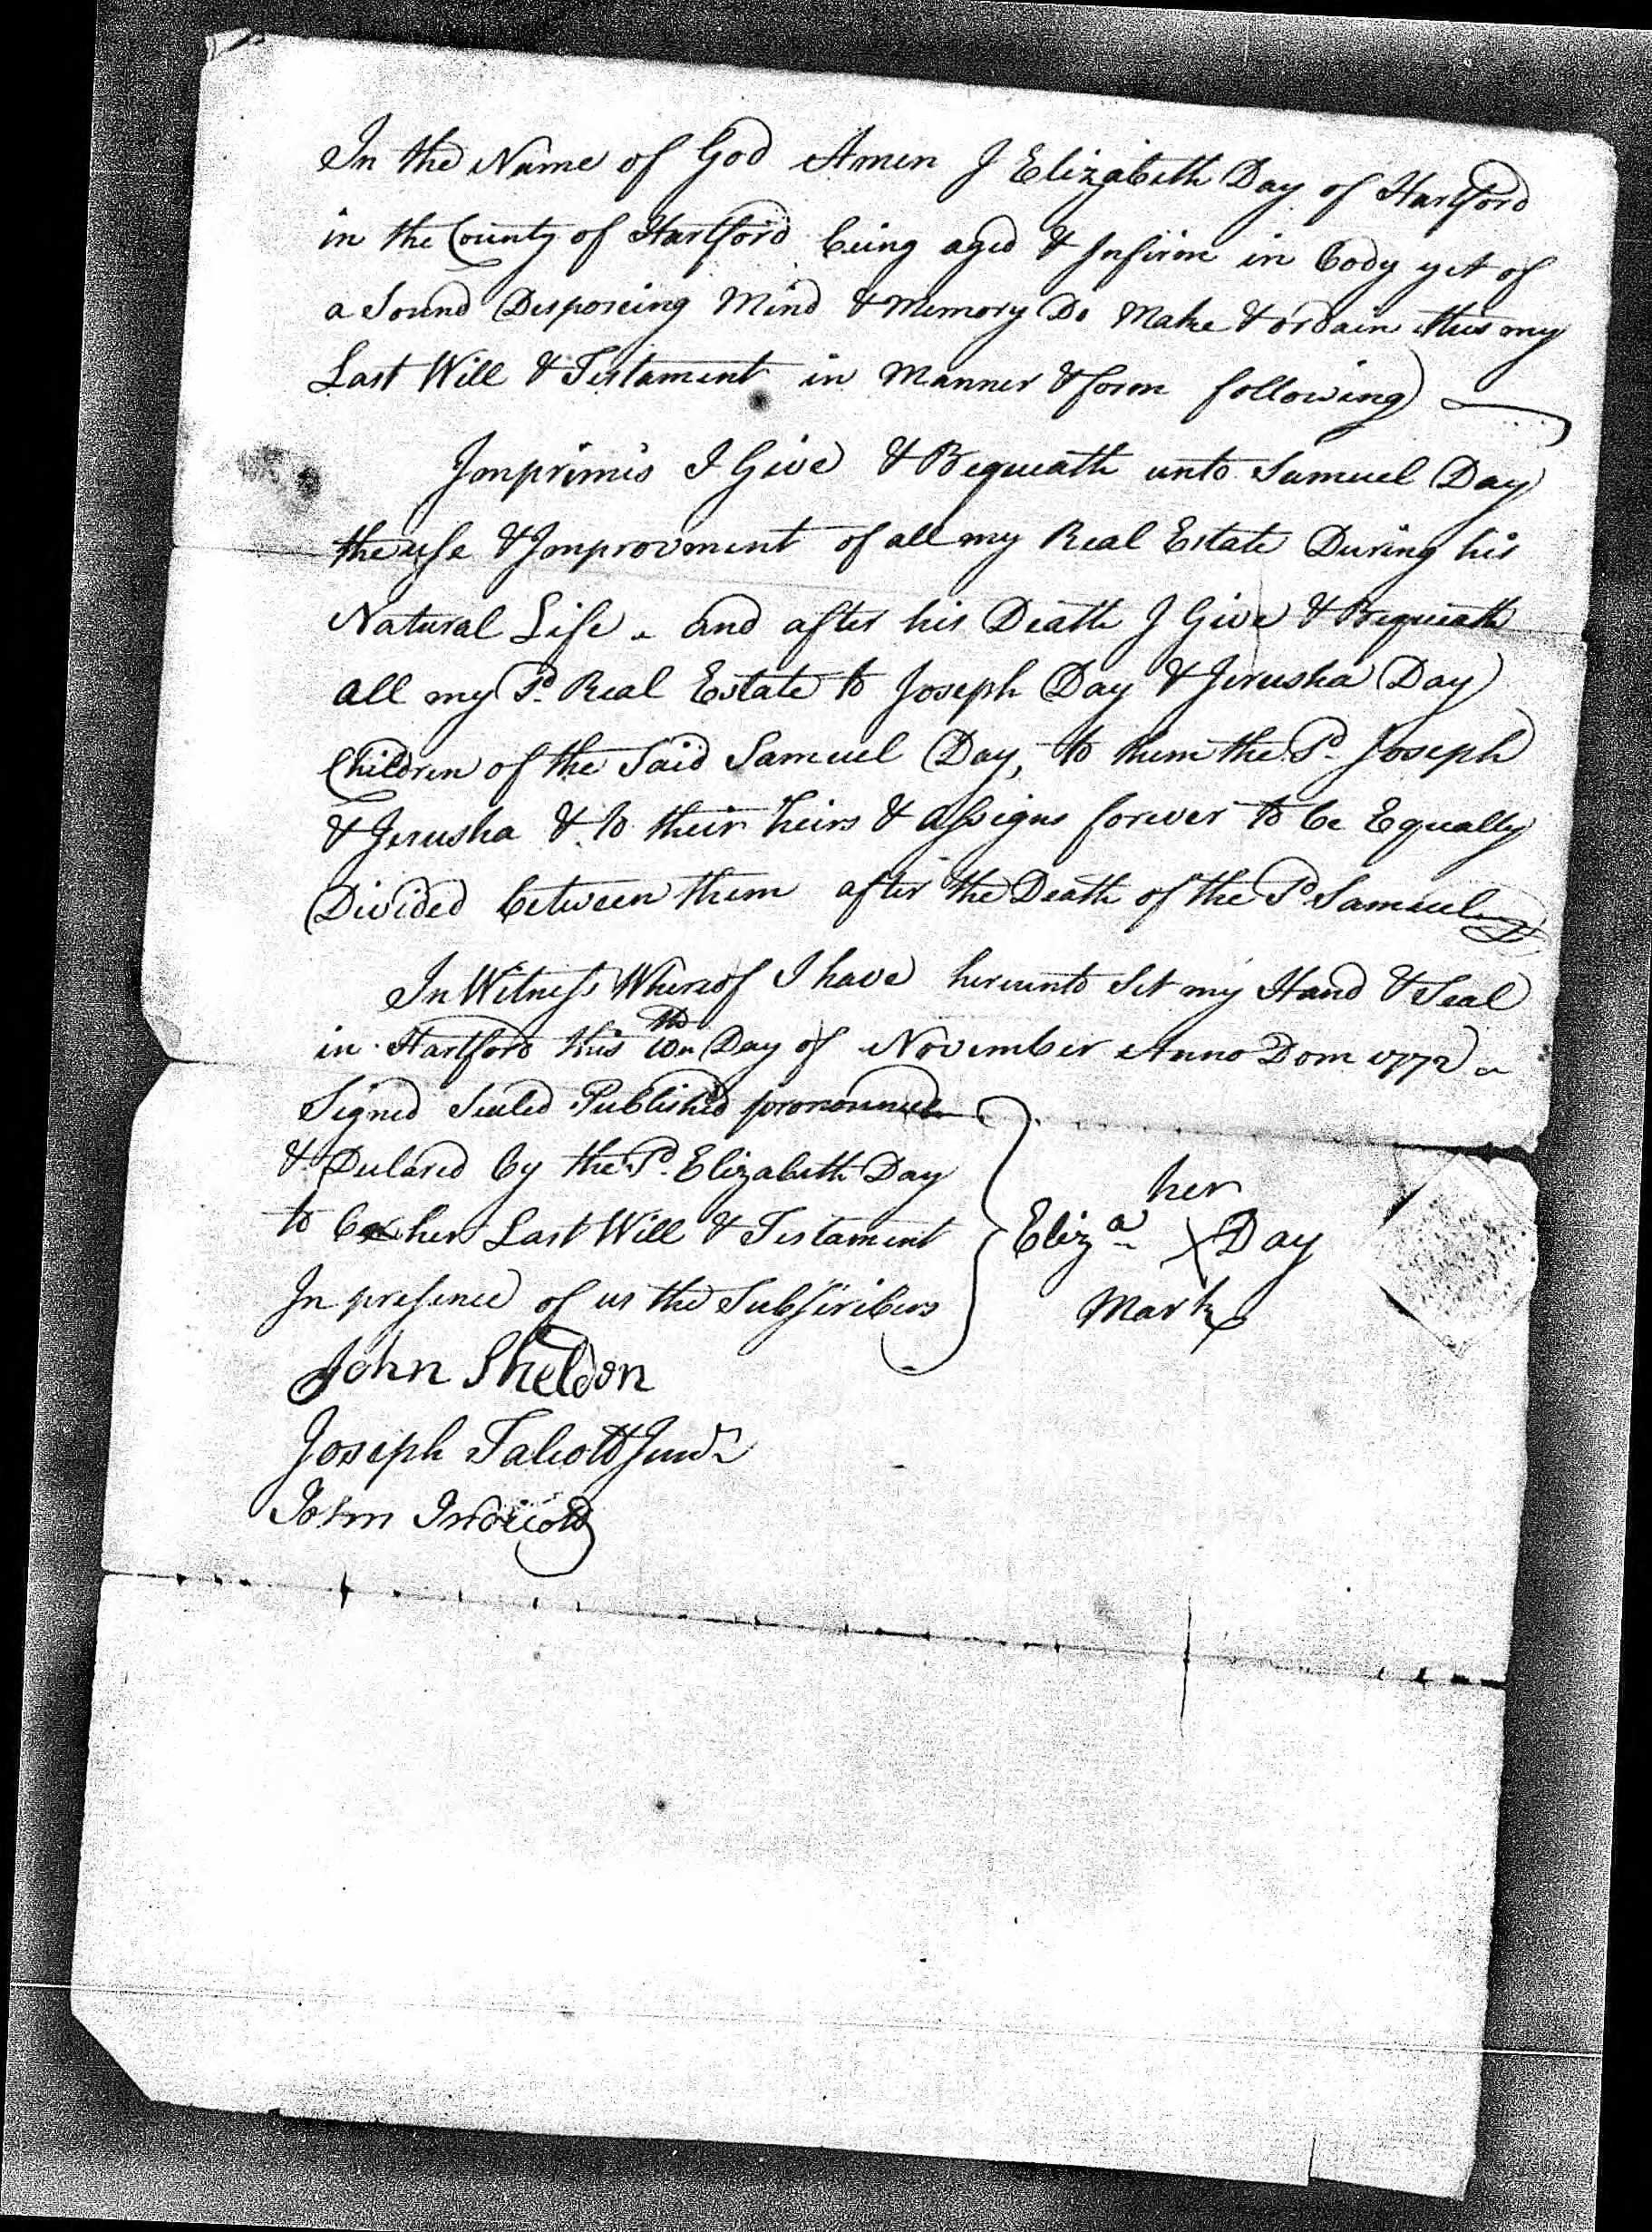 In the Name of God Amen I Elizabeth Day of Hartford
in the County of Hartford being aged & Infirm in body yet of
a Sound Disposeing Mind & Memory Do Make & ordain this my
Last Will & Testament in Manner & form following
Imprimis I Give & Bequeath unto Samuel Day
the use & Improvment of all my Real Estate During his
Natural Life - and after his Death I Give & Bequeath
all my Sd. Real Estate to Joseph Day & Jerusha Day
Children of the Said Samuel Day, to them the Sd. Joseph
& Jerusha & to their heirs & assigns forever to be Equally
Divided between them after the Death of the Sd Samuel
In Witness Whereof I have hereunto Set my Hand & Seal
in Hartford this 10th Day of November Anno Dom 1772
Signed Sealed Published pronounced
& Declared by the Sd. Elizabeth Day
to be her Last Will & Testament
In presence of us the Subscribers
her
Eliza X Day
Mark
John Sheldon
Joseph Talcott Junr
John